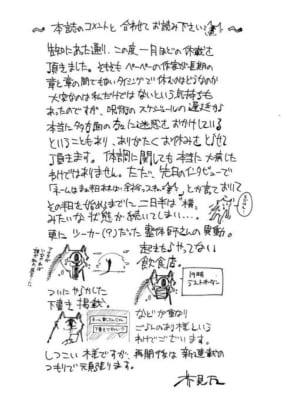 〜本誌のコメントと合わせてお読み下さい〜
告知にあった通り、この度一月ほどの休載を
頂きました。そもそもペーペーの作家が長期の
章と章の間でもないタイミングで休むのはどうなのか
大変なのは私だけではないという気持ちも
あったのですが、呪術のスケジュールの遅延が
本当に多方面の方々に迷惑をおかけしている
ということもあり、ありがたくお休みさせて
頂きます。体調に関しても本当に大病した
わけではありません。ただ、先日のインタビューで
「ネームは
とか言っておいて
その粗を始めるまでに二日半ほど「横」
みたいな状態が続いてしまい…。
更にツーカー(?)だった整体師さんの異動。
起きたらやってない
飲食店。
19時
ラストオーダー
ついにやらかした
下書き掲載。
などが重なり
ごらんのあり様という
わけでございます。
しつこい様ですが、再開後は新連載の
つもりで頑張ります。
芥見下々